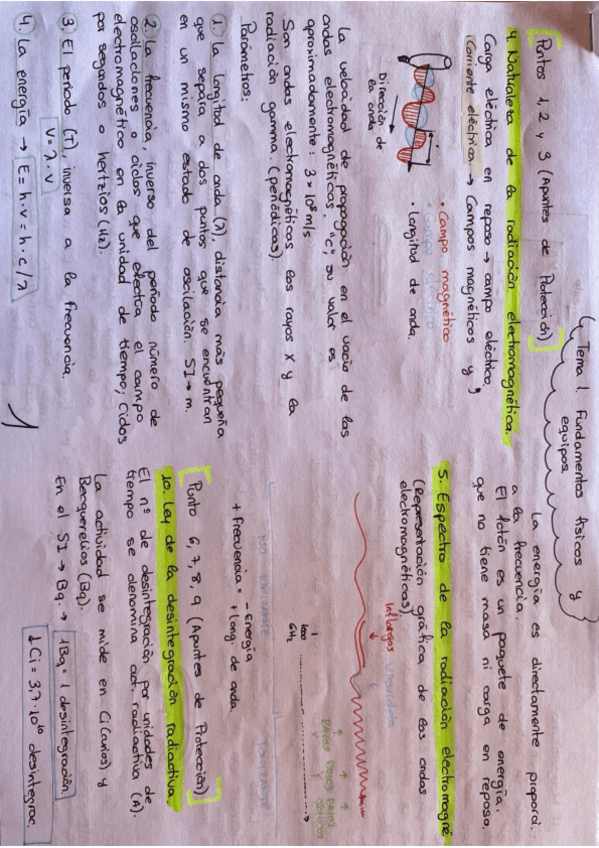 Tema 1. Fundamentos físicos y
equipos
Puntos 1, 2 y 3 (Apuntes de Protección)
4. Naturaleza de la radiación electromagnética.
Carga eléctrica en reposo → campo eléctrico.
Corriente eléctrica → Campos magnéticos y
• Campo magnético
• Campo eléctrico
• Longitud de onda.
Dirección de
la onda
La velocidad de propagación en el vacío de las
ondas electromagnéticas "c", su valor es
aproximadamente: 3 × 10⁸ m/s
Son ondas electromagnéticas los rayos X y la
radiación gamma. (periódicas).
Parámetros:
1. la longitud de onda (λ), distancia más pequeña
que separa a dos puntos que se encuentran
en un mismo estado de oscilación. SI → m.
2. la frecuencia, inverso del período número de
oscilaciones o ciclos que efectúa el campo
electromagnético en la unidad de tiempo; ciclos
por segundos o hertzios (Hz).
3. El período (T), inversa a la frecuencia.
V = λ · ν
4. la energía → E = h · ν = h · c / λ
1
La energía es directamente proporci.
a la frecuencia.
El fotón es un paquete de energía.
que no tiene masa ni carga en reposo.
5. Espectro de la radiación electromagné
(Representación gráfica de las ondas
electromagnéticas)
Infrarojos ultravioleta
1
1000
GHz
RAYOS X
RAYOS
+ frecuencia = - Energía
+ Long. de onda.
Punto 6, 7, 8, 9 (Apuntes de Protección)
10. Ley de la desintegración radiactiva.
El nº de desintegración por unidades de
tiempo se denomina act. radiactiva (A).
La actividad se mide en Ci (curios) y
Becquerelios (Bq).
En el SI → Bq. → 1Bq = 1 desintegración
1 Ci = 3,7 · 10¹⁰ desintegrac.